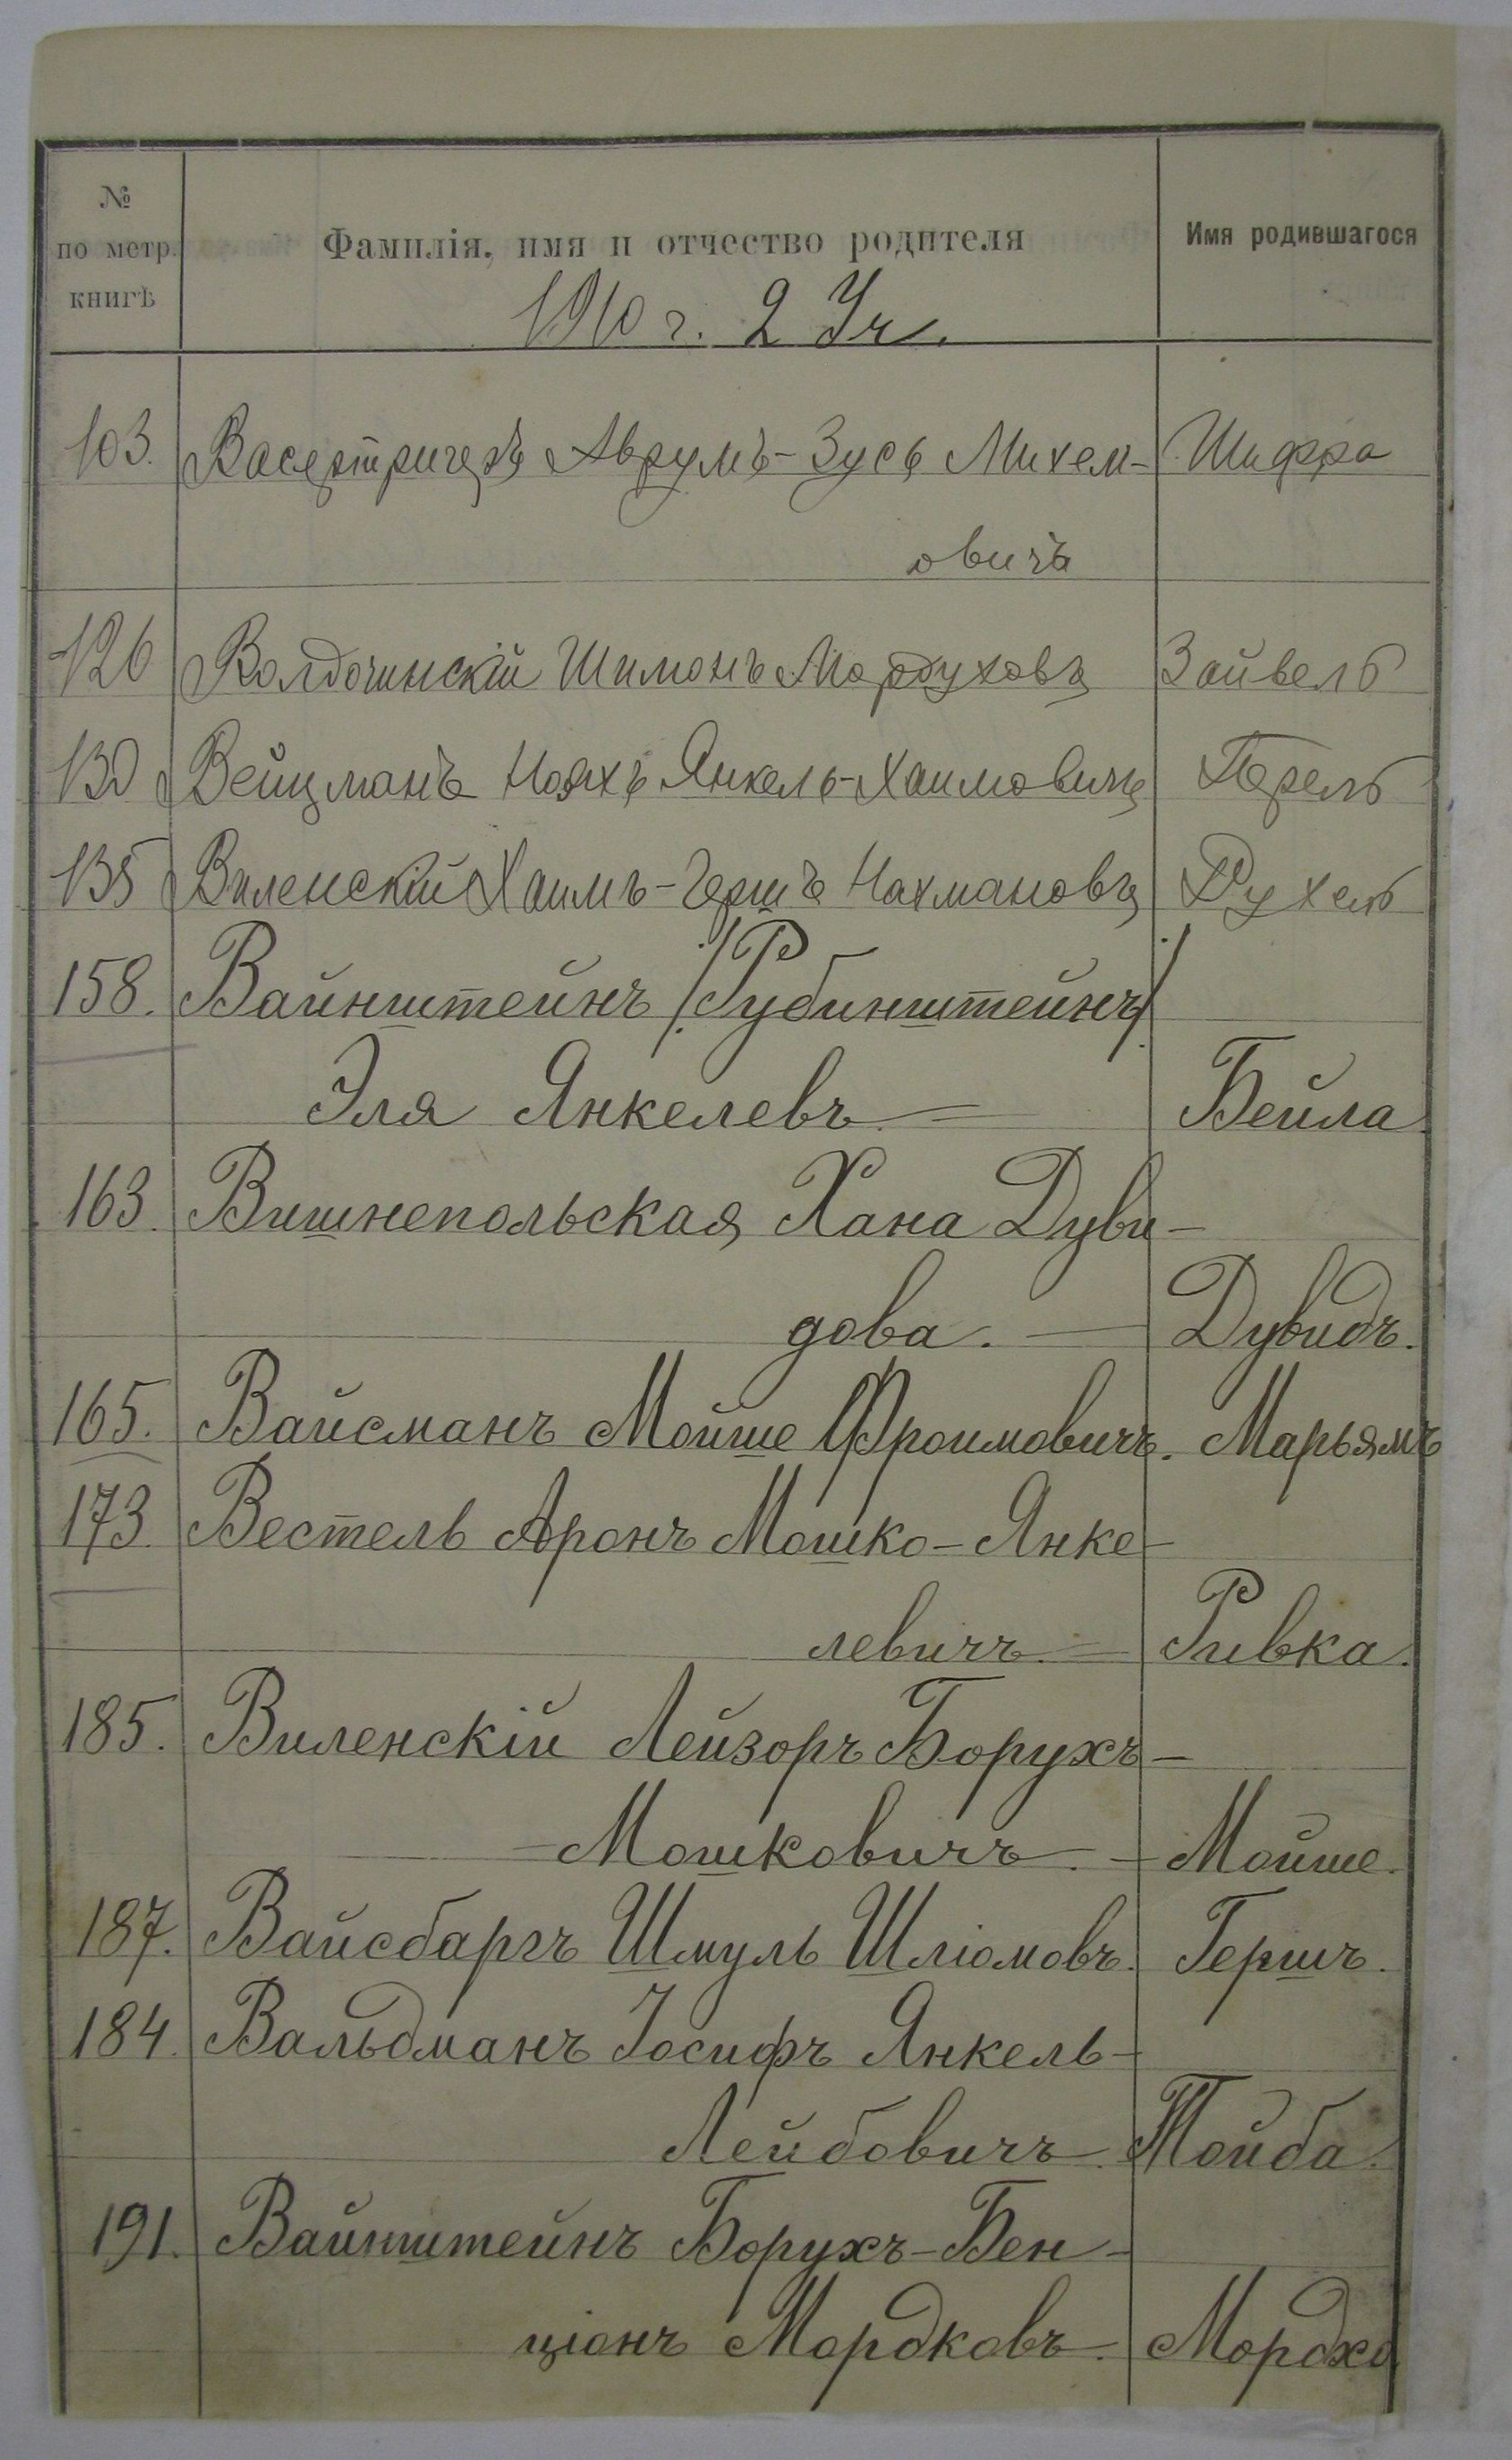 №
по метр.
книгѣ
Фамилія, имя и отчество родителя
Имя родившагося
1910 г. 2 Уч.
103. Аврумъ-Зусь Михел- Шифра
овичъ
126 Шимонъ Мордуховъ Зайвель
130 Вейцманъ Нояхъ Янкель-Хаимовичъ Перель
135 Виленскій Хаимъ-Гершъ Нахмановъ Рухель
158. Вайнштейнъ /Рубинштейнъ/
Эля Янкелевъ — Бейла.
163. Вишнепольская Хана Дуви-
дова. — Дувидъ.
165. Вайсманъ Мойше Фроимовичъ. Марьямъ
173. Вестель Аронъ Мошко-Янке-
левичъ. — Ривка.
185. Виленскій Лейзоръ Борухъ-
-Мошковичъ. — Мойше.
187. Вайсбаргъ Шмуль Шліомовъ. Гершъ.
184. Вальдманъ Іосифъ Янкель-
Лейбовичъ. Тойба.
191. Вайнштейнъ Борухъ-Бен-
ціонъ Мордковъ. Мордхо